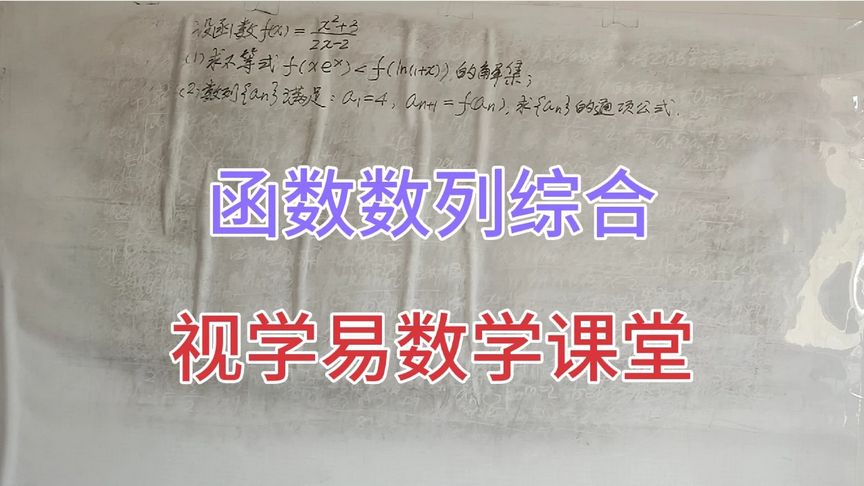 设函数f(x)=\frac{x²+3}{2x-2}
(1)求不等式f(xeˣ)<f(ln(1+x))的解集;
(2)数列{aₙ}满足:a₁=4,aₙ₊₁=f(aₙ),求{aₙ}的通项公式.
函数数列综合
视学易数学课堂